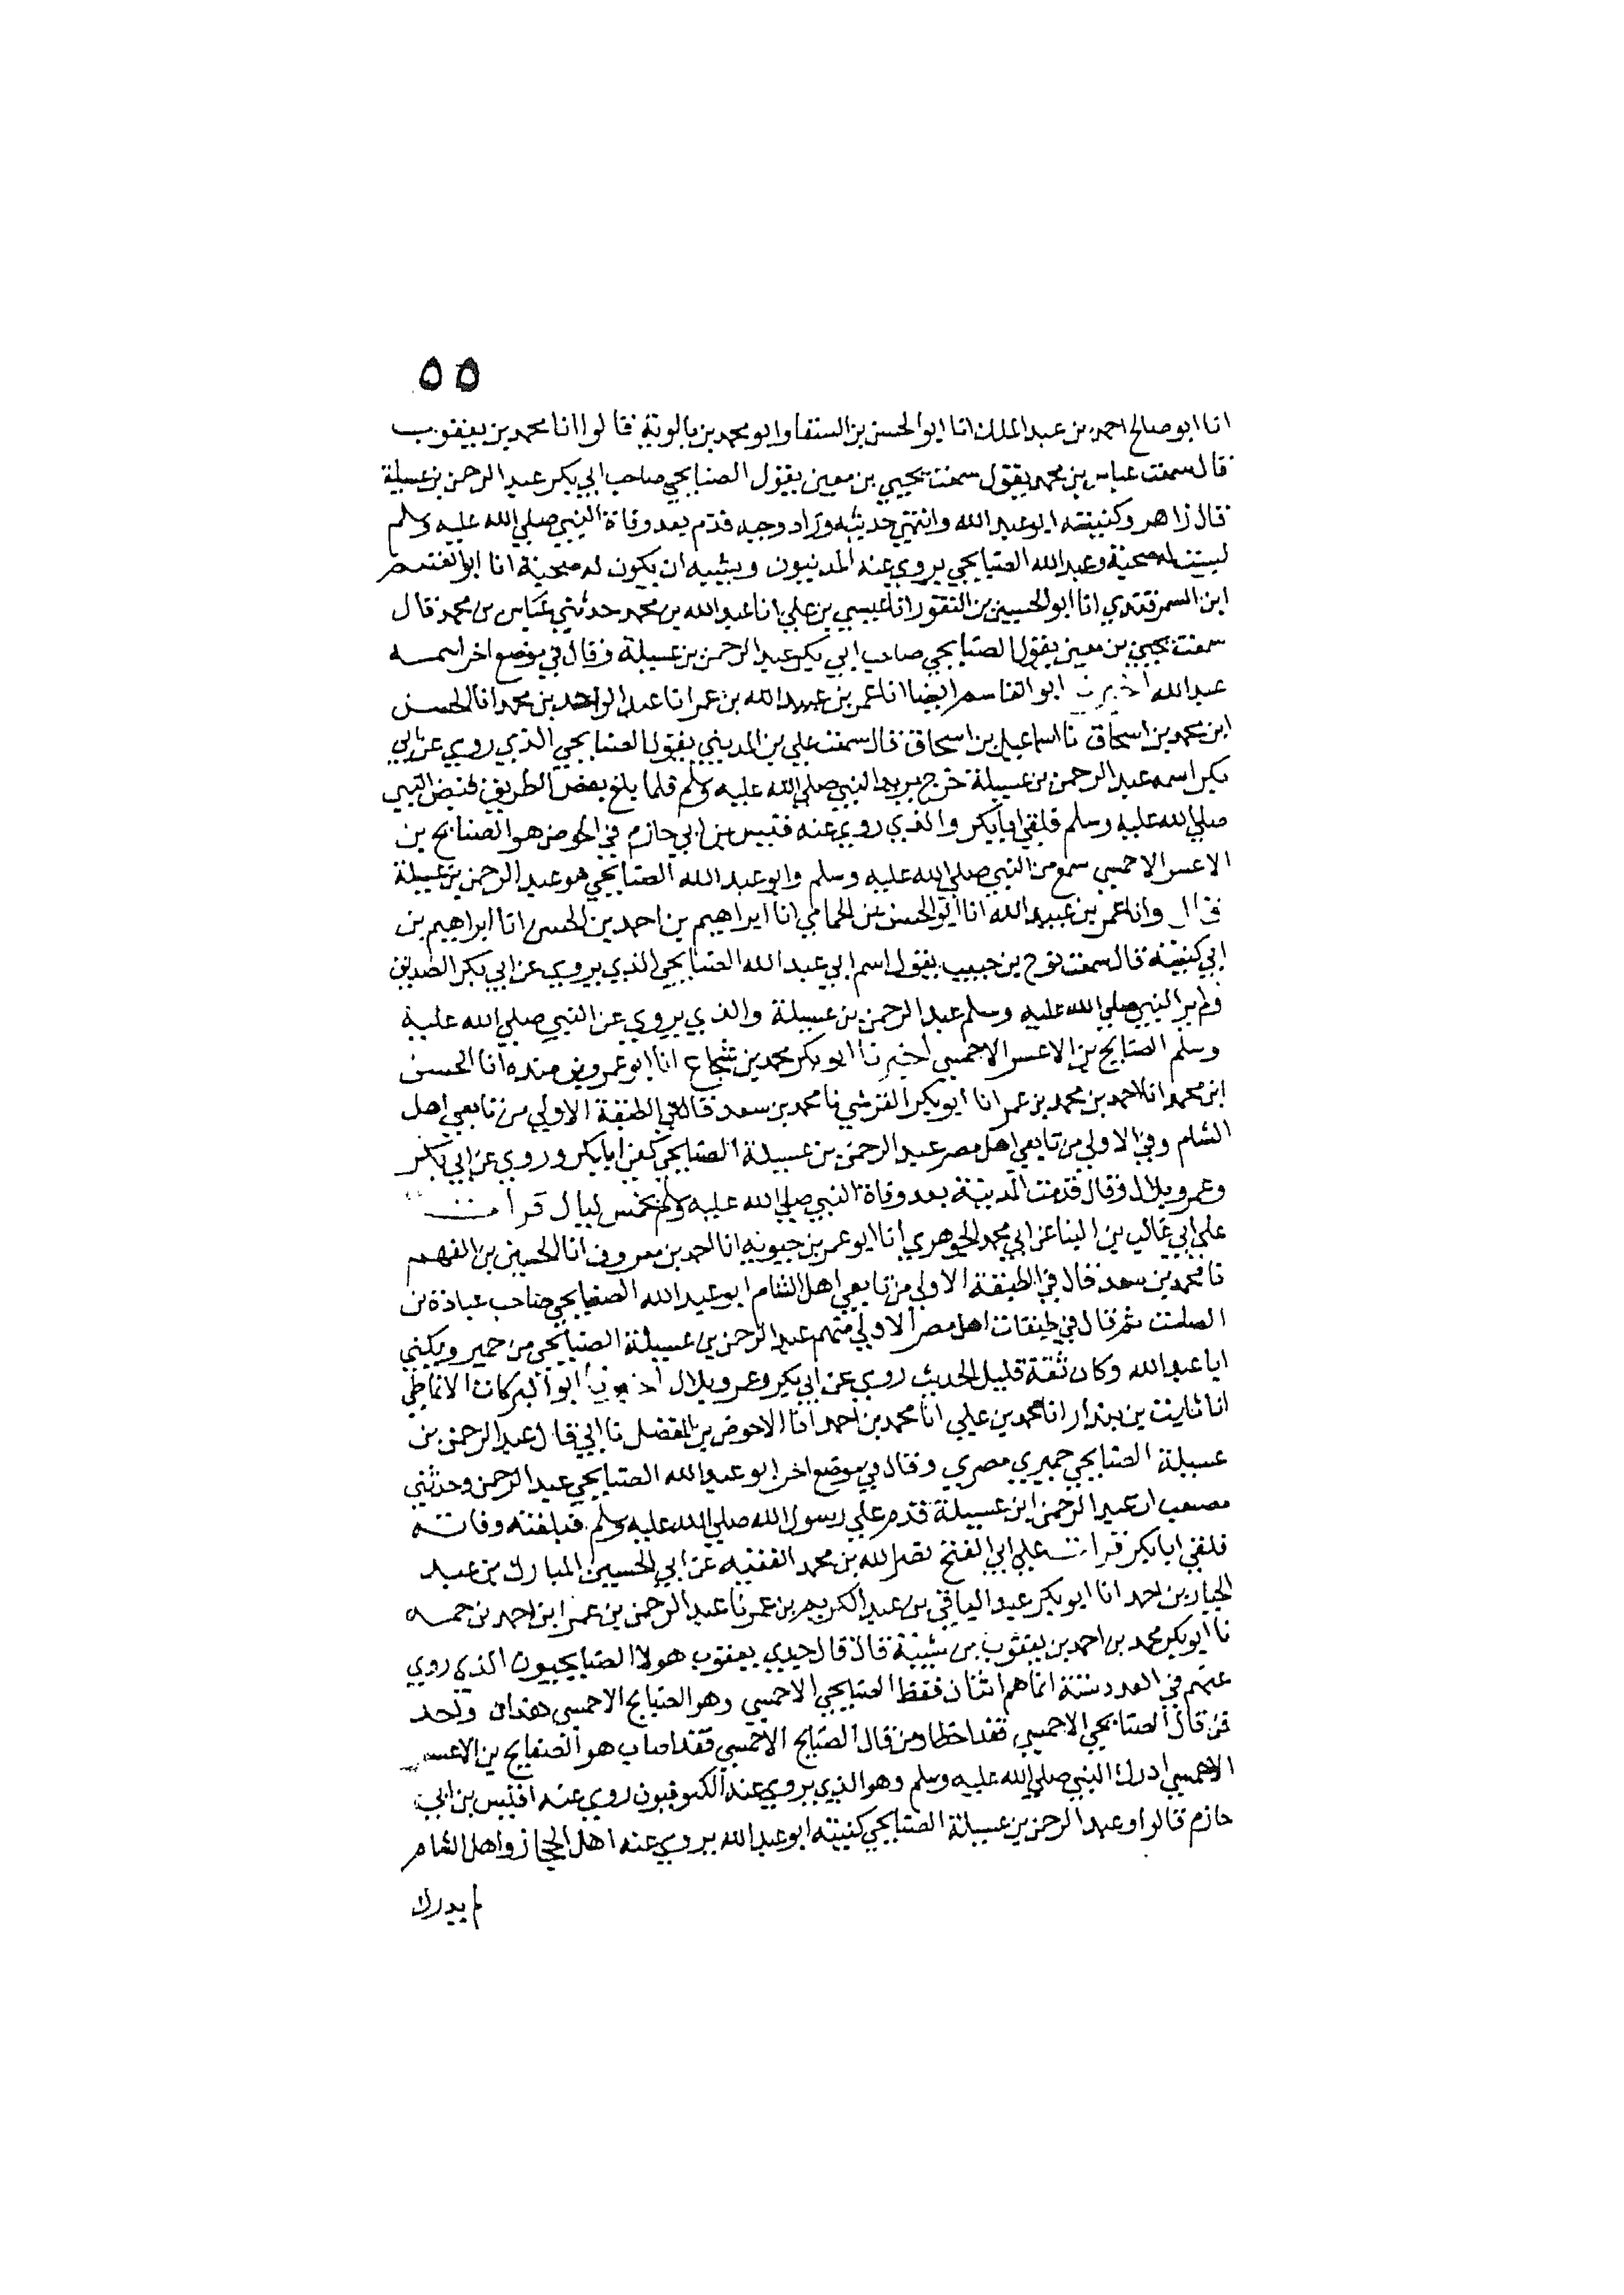 ٥٥
انا ابو صالح احمد بن عبد الملك انا ابو الحسن بن السقا وابو محمد بن بالوية قالوا انا محمد بن يعقوب
قال سمعت عباس بن محمد يقول سمعت يحيي بن معين يقول الصنابحي صاحب ابي بكر عبد الرحمن بن عسيلة
قال زاهر وكنيته ابو عبد الله وانتهي حديثه وزاد وجيه قدم بعد وفاة النبي صلي الله عليه وسلم
ليست له صحبة وعبد الله الصنابحي يروي عنه المدنيون ويشبه ان يكون له صحبة انا ابو القسم
ابن السمرقندي انا ابو الحسين بن النقور انا عيسي بن علي انا عبد الله بن محمد حدثني عباس بن محمد قال
سمعت يحيي بن معين يقول الصنابحي صاحب ابي بكر عبد الرحمن بن عسيلة وقال في موضع اخر اسمه
عبد الله اخبرنا ابو القاسم ايضا انا عمر بن عبيد الله بن عمر انا عبد الواحد بن محمد انا الحسن
ابن محمد بن اسحاق نا اسماعيل بن اسحاق قال سمعت علي بن المديني يقول الصنابحي الذي روي عن ابي
بكر اسمه عبد الرحمن بن عسيلة خرج يريد النبي صلي الله عليه وسلم فلما بلغ بعض الطريق قبض النبي
صلي الله عليه وسلم فلقي ابا بكر والذي روي عنه قيس بن ابي حازم في الحوض هو الصنابح بن
الاعسر الاحمسي سمع من النبي صلي الله عليه وسلم وابو عبد الله الصنابحي هو عبد الرحمن بن عسيلة
قال وانا عمر بن عبيد الله انا ابو الحسن بن الحمامي انا ابراهيم بن احمد بن الحسن انا ابراهيم بن
ابي كنيته قال سمعت نوح بن حبيب يقول اسم ابي عبد الله الصنابحي الذي يروي عن ابي بكر الصديق
ولم ير النبي صلي الله عليه وسلم عبد الرحمن بن عسيلة والذي يروي عن النبي صلي الله عليه
وسلم الصنابح بن الاعسر الاحمسي اخبرنا ابو بكر محمد بن شجاع انا ابو عمرو بن منده انا الحسن
ابن محمد انا احمد بن محمد بن عمر انا ابو بكر القرشي نا محمد بن سعد قال في الطبقة الاولي من تابعي اهل
الشام وفي الاولي من تابعي اهل مصر عبد الرحمن بن عسيلة الصنابحي ابا بكر وروي عن ابي بكر
وعمر وبلال وقال قدمت المدينة بعد وفاة النبي صلي الله عليه وسلم بخمس ليال قرات
علي ابي غالب بن البنا عن ابي محمد الجوهري انا ابو عمر بن حيويه انا احمد بن معروف انا الحسين بن الفهم
نا محمد بن سعد قال في الطبقة الاولي من تابعي اهل الشام ابو عبد الله الصنابحي صاحب عبادة بن
الصامت ثم قال في طبقات اهل مصر الاولي منهم عبد الرحمن بن عسيلة الصنابحي من حمير ويكني
ابا عبد الله وكان ثقة قليل الحديث روي عن ابي بكر وعمر وبلال اخبرنا ابو البركات الانماطي
انا ثابت بن بندار انا محمد بن علي انا محمد بن احمد انا الاحوص بن المفضل نا ابي قال عبد الرحمن بن
عسيلة الصنابحي حميري مصري وقال في موضع اخر ابو عبد الله الصنابحي عبد الرحمن وحدثني
مصعب ان عبد الرحمن ابن عسيلة قدم علي رسول الله صلي الله عليه وسلم فبلغته وفاته
فلقي ابا بكر قرات علي ابي الفتح نصر الله بن محمد الفقيه عن ابي الحسين المبارك بن عبد
الجبار بن احمد انا ابو بكر عبد الباقي بن عبد الكريم بن عمر نا عبد الرحمن بن عمر ابن احمد بن حمه
نا ابو بكر محمد بن احمد بن يعقوب بن شيبة قال قال جدي يعقوب هولا الصنابحيون الذي روي
عنهم في العدد ستة انما هم اثنان فقط الصنابحي الاحمسي وهو الصنابح الاحمسي هذان واحد
فمن قال الصنابحي الاحمسي فقد اخطا ومن قال الصنابح الاحمسي فقد اصاب هو الصنابح بن الاعسر
الاحمسي ادرك النبي صلي الله عليه وسلم وهو الذي يروي عنه الكوفيون روي عنه قيس بن ابي
حازم قالوا وعبد الرحمن بن عسيلة الصنابحي كنيته ابو عبد الله يروي عنه اهل الحجاز واهل الشام
لم يدرك